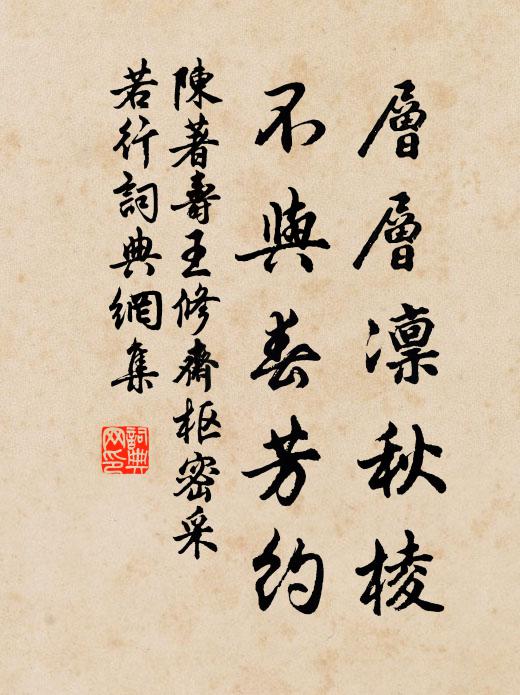 層層凜秋棱
不與春芳約
陳著壽王修齋樞密采
若行詞典網集
詞典
网印